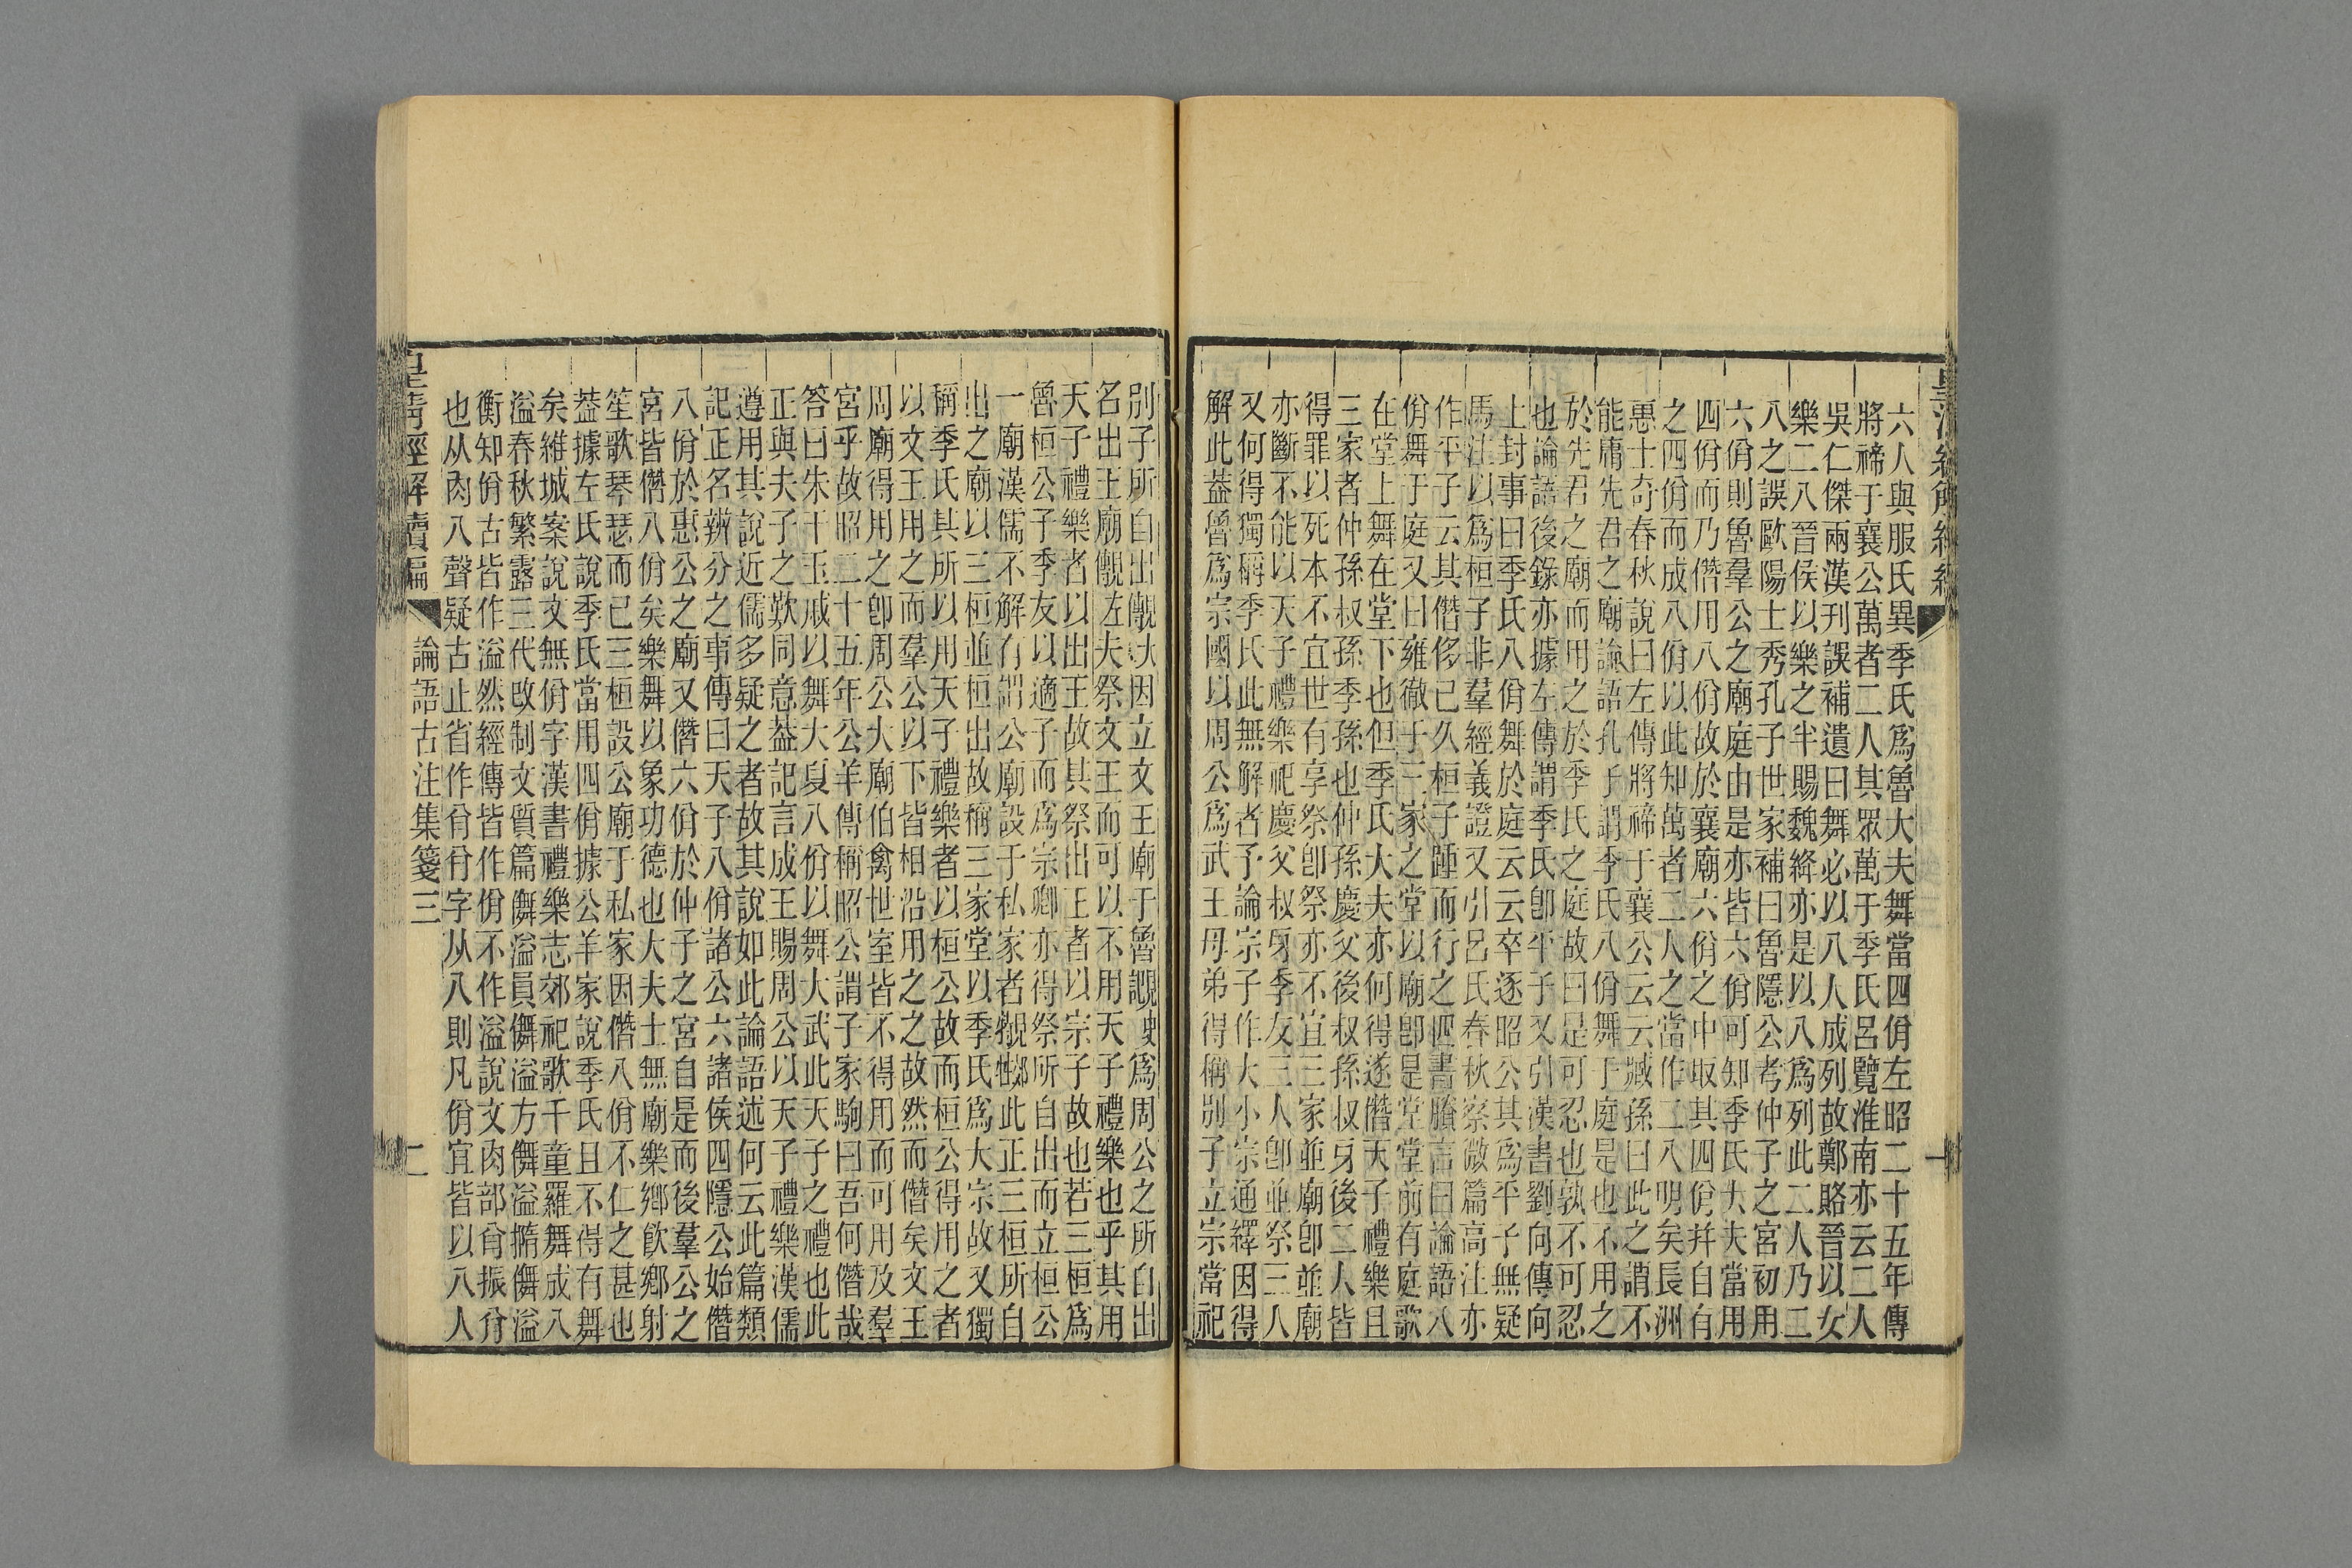 六人與服氏異季氏爲魯大夫舞當四佾左昭二十五年傳
將禘于襄公萬者二人其眾萬于季氏呂覽淮南亦云二人
吳仁傑兩漢刊誤補遺曰舞必以八人成列故鄭賂晉以女
樂二八晉侯以樂之半賜魏絳亦是以八爲列此二人乃二
八之誤歐陽士秀孔子世家補曰魯隱公考仲子之宮初用
六佾則魯羣公之廟庭由是亦皆六佾可知季氏大夫當用
四佾而乃僭用八佾故於襄廟六佾之中取其四佾幷自有
之四佾而成八佾以此知萬者二人之當作二八明矣長洲
惠士奇春秋說曰左傳將禘于襄公云云臧孫曰此之謂不
能庸先君之廟論語孔子謂季氏八佾舞于庭是也不用之
於先君之廟而用之於季氏之庭故曰是可忍也孰不可忍
也論語後錄亦據左傳謂季氏卽平子又引漢書劉向傳向
上封事曰季氏八佾舞於庭云云卒逐昭公其爲平子無疑
馬注以爲桓子非羣經義證又引呂氏春秋察微篇高注亦
作平子云其僭侈已久桓子踵而行之四書賸言曰論語八
佾舞于庭又曰雍徹于三家之堂以廟卽是堂堂前有庭歌
在堂上舞在堂下也但季氏大夫亦何得遂僭天子禮樂且
三家者仲孫叔孫季孫也仲孫慶父後叔孫叔牙後二人皆
得罪以死本不宜世有享祭卽祭亦不宜三家並廟卽並廟
亦斷不能以天子禮樂祀慶父叔牙季友三人卽並祭三人
又何得獨稱季氏此無解者予論宗子作大小宗通繹因得
解此葢魯爲宗國以周公爲武王母弟得稱別子立宗當祀
別子所自出覷㳄因立文王廟于魯覷㕜爲周公之所自出
名出王廟覷㳄夫祭文王而可以不用天子禮樂也乎其用
天子禮樂者以出王故其祭出王者以宗子故也若三桓爲
魯桓公子季友以適子而爲宗卿亦得祭所自出而立桓公
一廟漢儒不解有謂公廟設于私家者覷㹃此正三桓所自
出之廟以三桓並桓出故稱三家堂以季氏爲大宗故又獨
稱季氏其所以用天子禮樂者以桓公故而桓公得用之者
以文王用之而羣公以下皆相沿用之故然而僭矣文王
周廟得用之卽周公大廟伯禽世室皆不得用而可用及羣
宮乎故昭二十五年公羊傳稱昭公謂子家駒曰吾何僭哉
答曰朱干玉戚以舞大夏八佾以舞大武此天子之禮也此
正與夫子之歎同意葢記言成王賜周公以天子禮樂漢儒
遵用其說近儒多疑之者故其說如此論語述何云此篇類
記正名辨分之事傳曰天子八佾諸公六諸侯四隱公始僭
八佾於惠公之廟又僭六佾於仲子之宮自是而後羣公之
宮皆僭八佾矣樂舞以象功德也大夫士無廟樂鄉飲鄉射
笙歌琴瑟而已三桓設公廟于私家因僭八佾不仁之甚也
葢據左氏說季氏當用四佾據公羊家說季氏且不得有舞
矣維城案說文無佾字漢書禮樂志郊祀歌千童羅舞成八
溢春秋繁露三代改制文質篇儛溢員儛溢方儛溢橢儛溢
衡知佾古皆作溢然經傳皆作佾不作溢說文肉部㕣振㕣
也从肉八聲疑古止省作㕣㕣字从八則凡佾宜皆以八人
皇清經解續編
論語古注集箋三
二